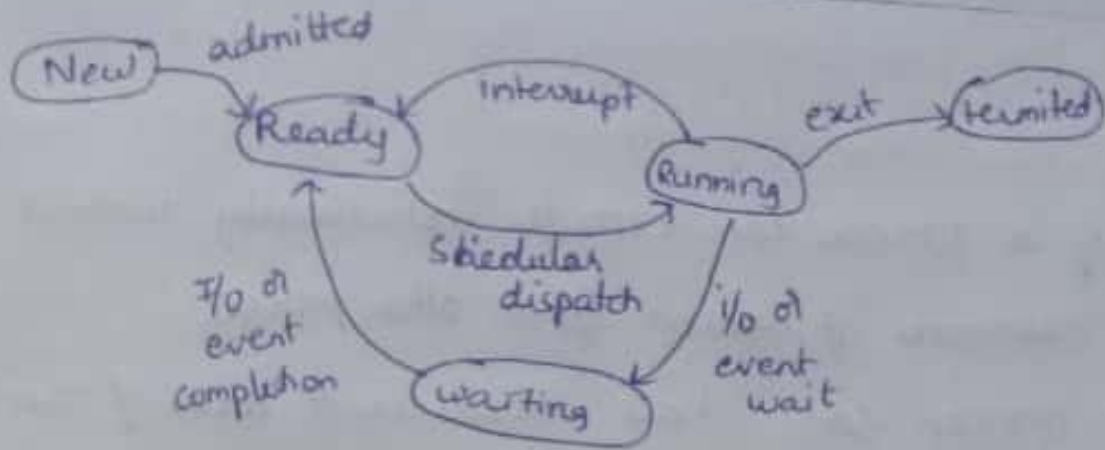 New
admitted
Ready
interrupt
exit
termited
Running
Shedular
dispatch
I/O or
event
completion
i/o or
event
wait
waiting